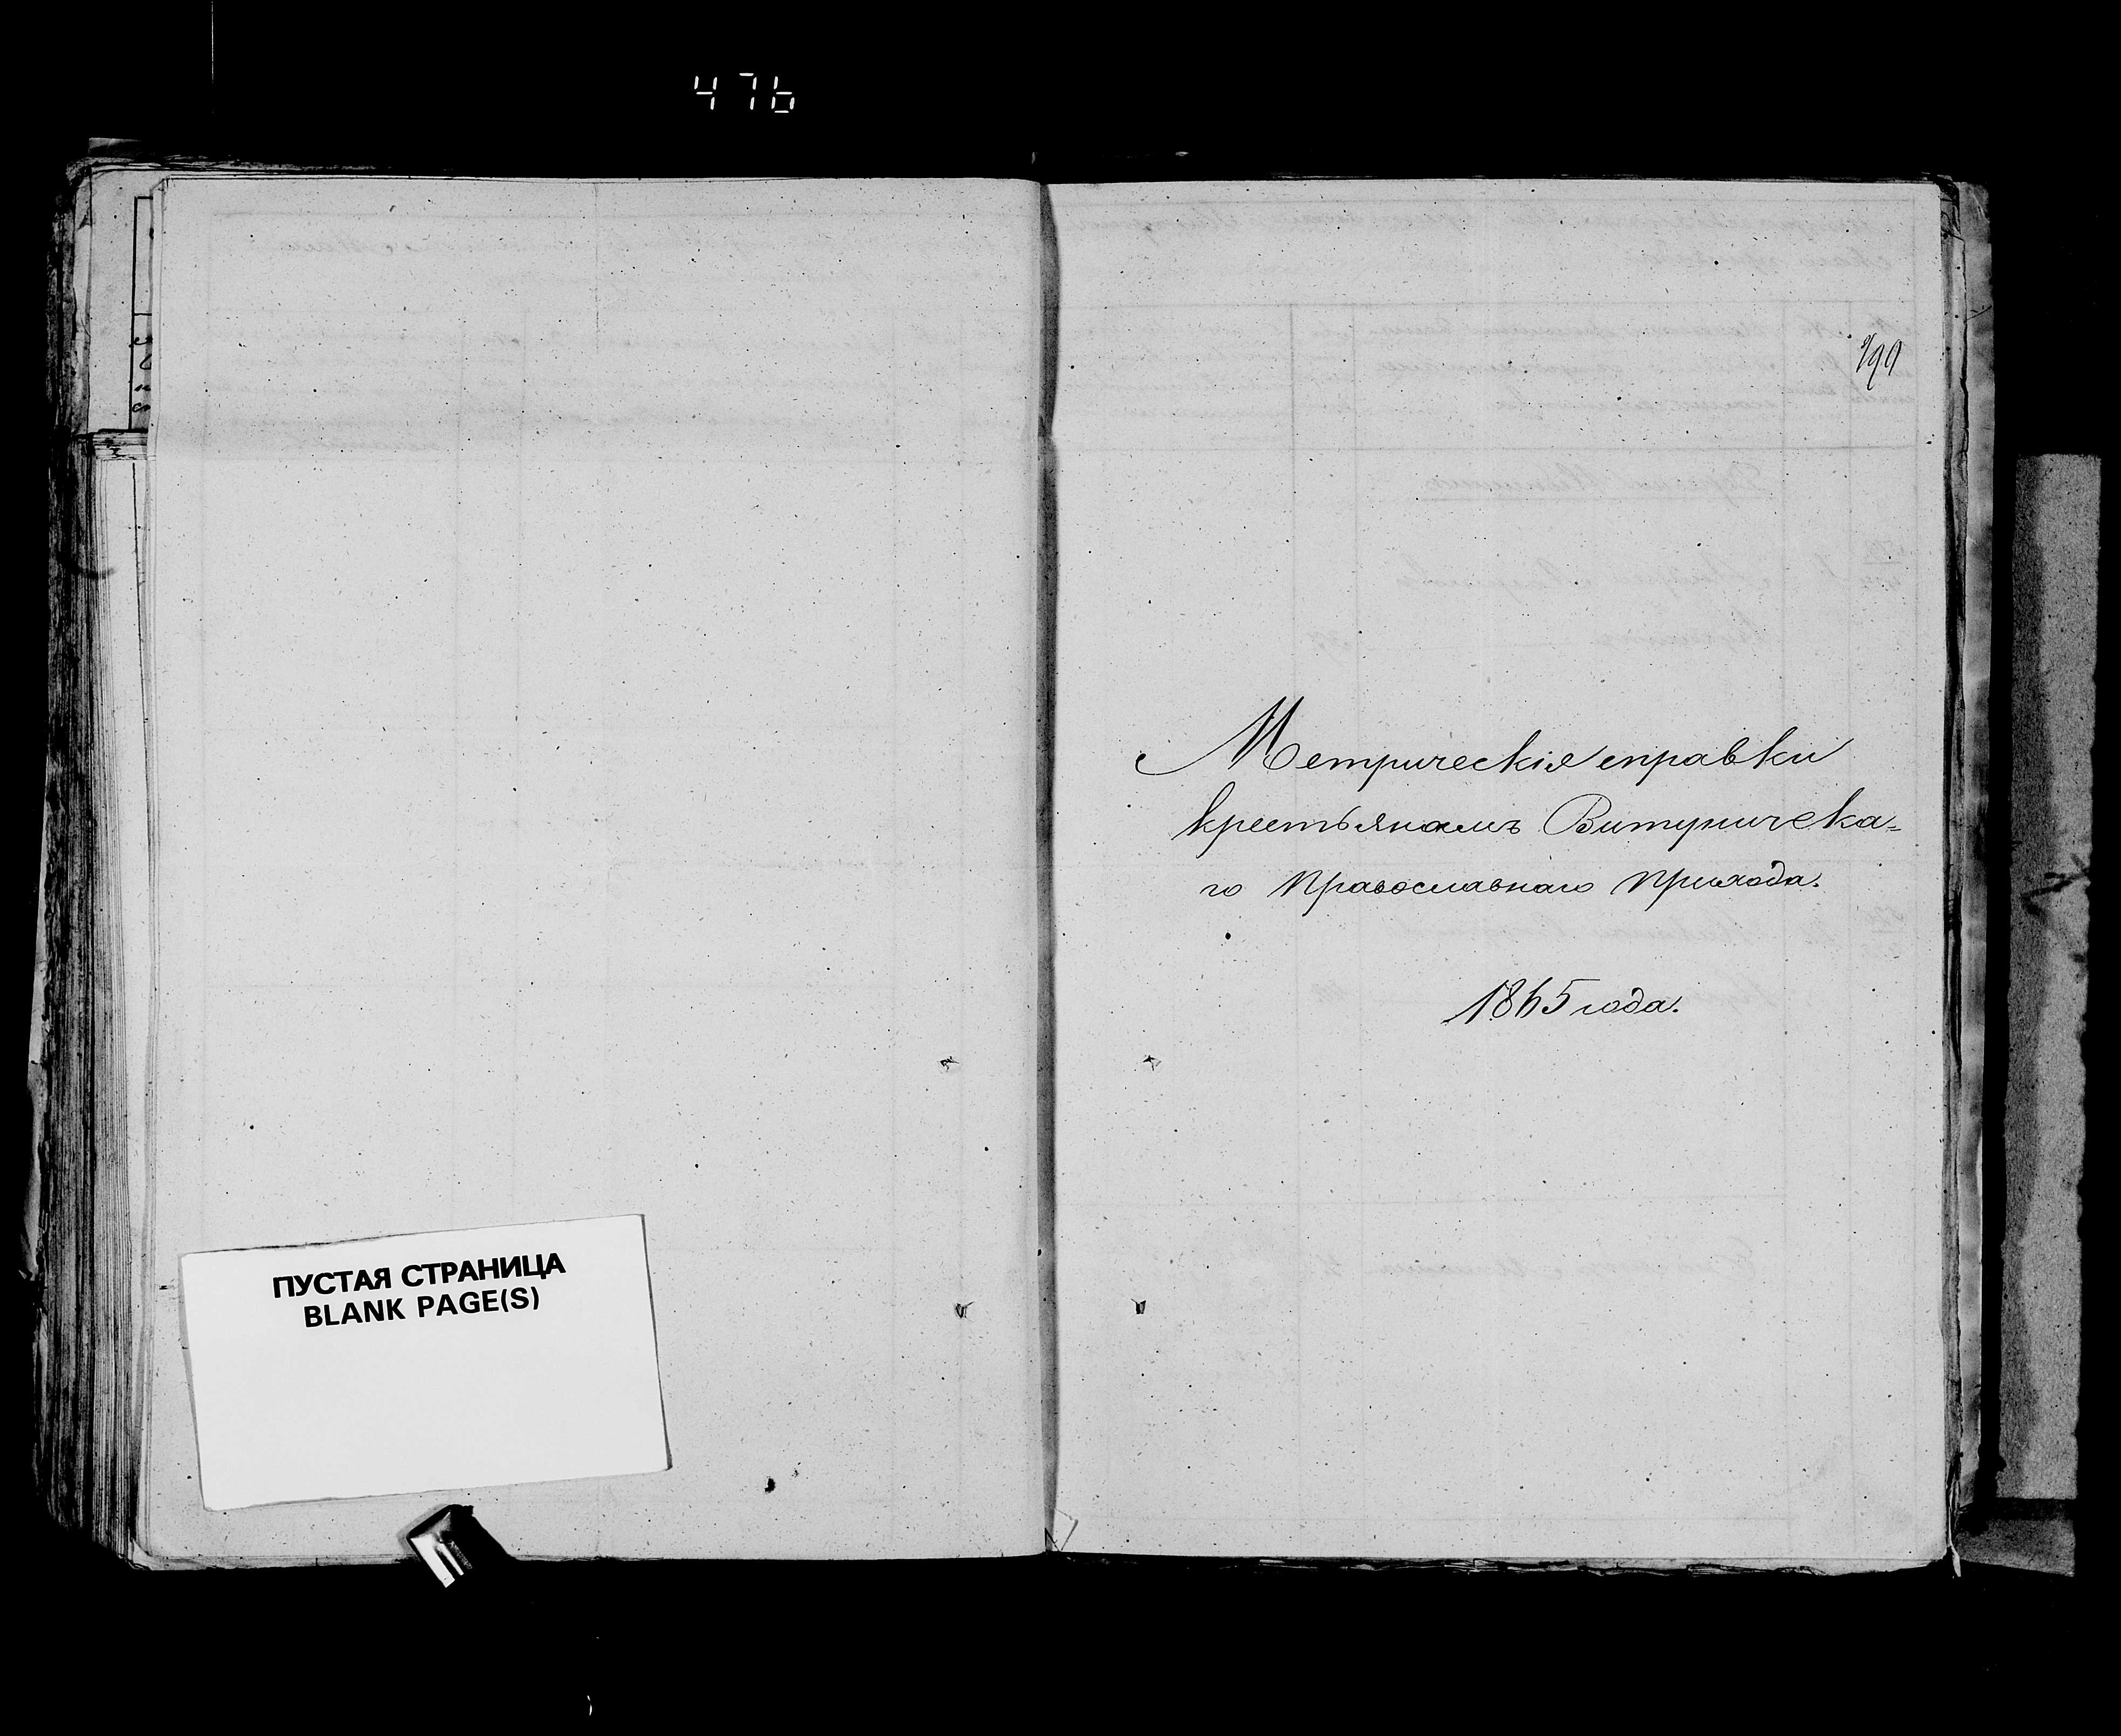 476
ПУСТАЯ СТРАНИЦА
BLANK PAGE(S)
Метрическія справки
крестьянамъ Витуническа=
го Православнаго Прихода.
1865 года.